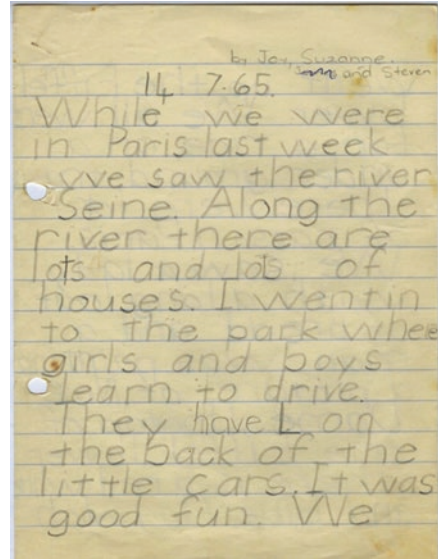 by Joy, Suzanne.
and Steven
14 7.65.
While we were
in Paris last week
we saw the river
Seine. Along the
river there are
lots and lots of
houses. I went in
to the park whee
girls and boys
learn to drive.
They have L on
the back of the
little cars. It was
good fun. We